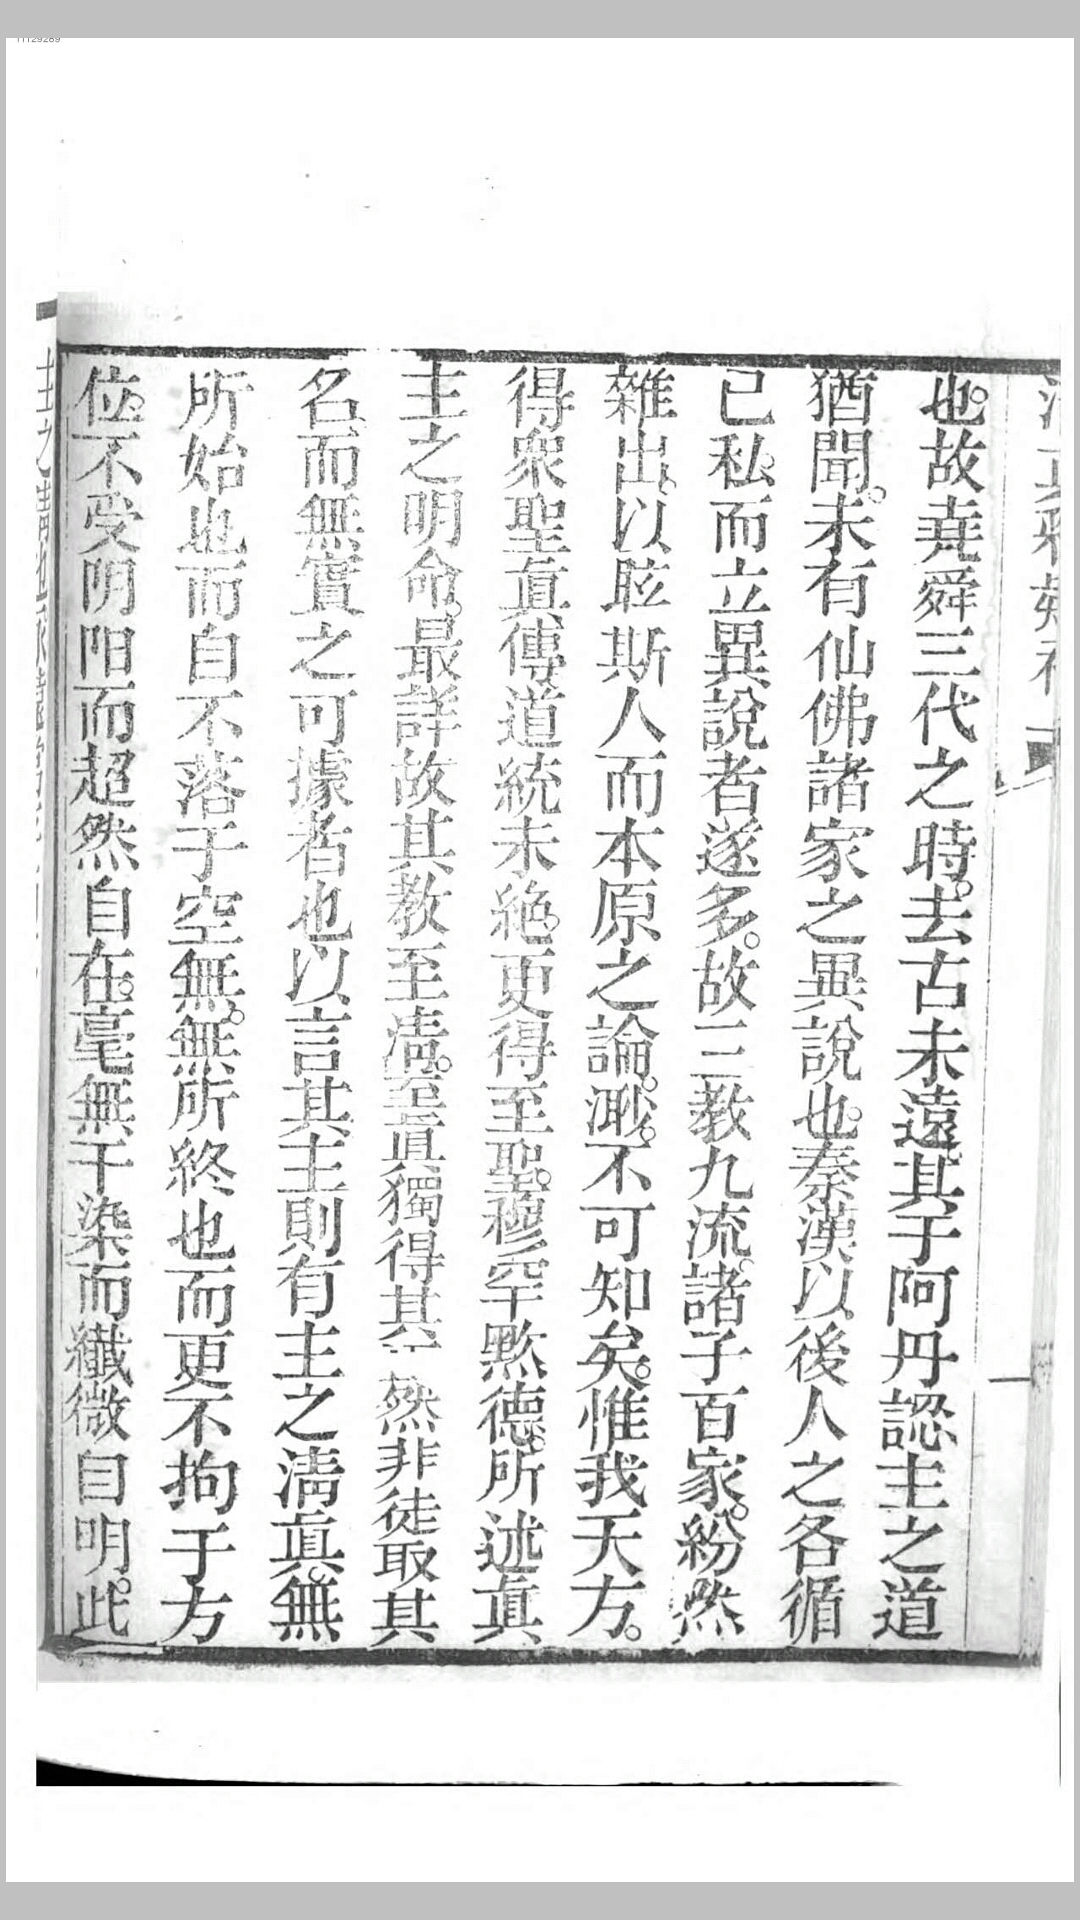 11129289
也。故堯舜三代之時。去古未遠。其于阿丹認主之道
猶聞。未有仙佛諸家之異說也。秦漢以後人之各循
已私。而立異說者遂多。故三教九流。諸子百家。紛然
雜出。以眩斯人而本原之論。渺。不可知矣。惟我天方。
得衆聖眞傳道統未絕。更得至聖。穆罕黙德。所述眞
主之明命。最詳故其教至淸。至眞獨得其 然非徒取其
名。而無實之可據者也以言其主則有主之淸眞。無
所始也而自不落于空無。無所終也而更不拘于方
位。不受阴阳而超然自在。毫無干染而纎微自明。此